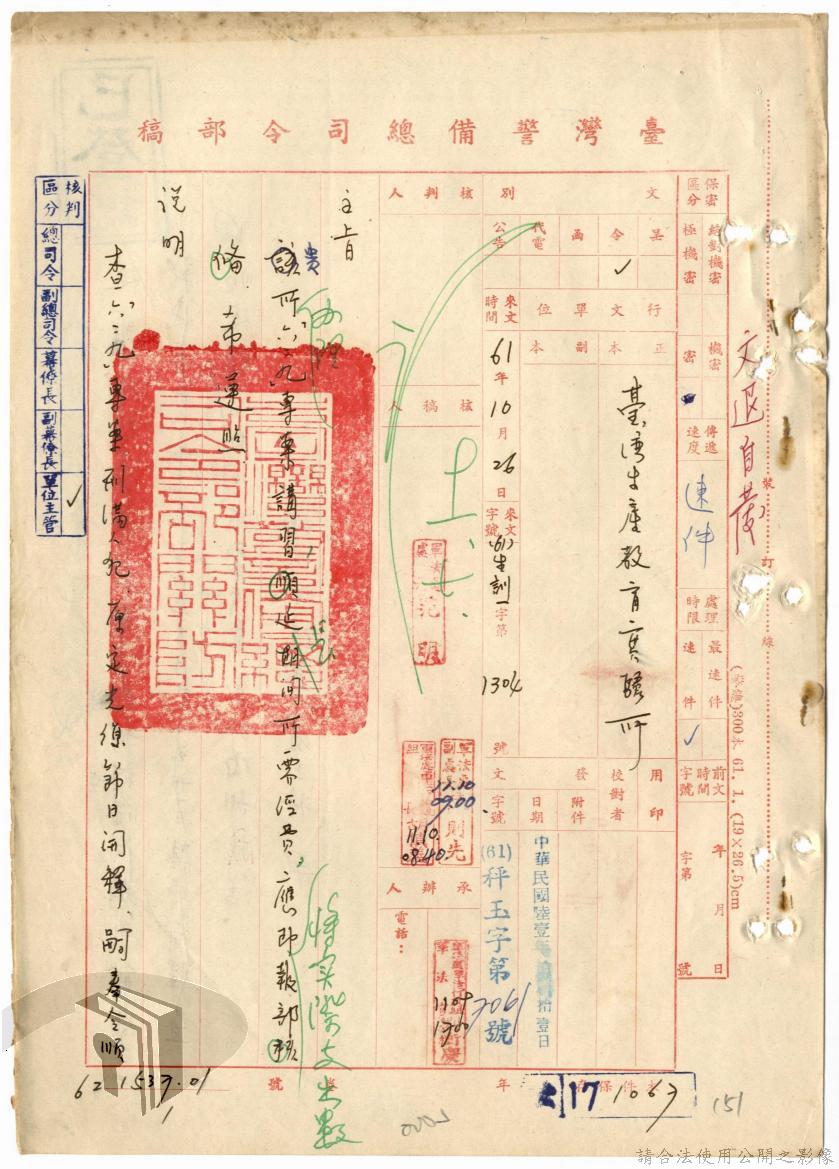 臺灣警備總司令部稿
保密區分
絕對機密
極機密
機密
密
傳遞速度
速件
處理時限
最速件
速件
前文時間字號
年 月 日
字第 號
文別
呈
令
函
代電
公告
行文單位
正本
副本
臺灣生產教育實驗所
來文時間
61年10月26日
來文字號
(61)生訓一字第1304號
用印
校對者
發文
附件
日期
字號
中華民國陸壹年
拾壹日
(61)秤玉字第7061號
核判人
核稿人
承辦人
電話：
11.10
09.00
11.10.
08.40
主旨
貴所「六二九」專案講習順延期間所需經費，應即報部核
備，希遵照
辦理
將實際支出數
說明
查「六二九」專案刑滿人犯，原定光復節日開釋，嗣奉令順
核判區分
總司令
副總司令
幕僚長
副幕僚長
單位主管
文退自黃
裝訂線
300本 61. 1. (19×26.5)cm
62 1537.01
1
號
年
17 1063
151
請合法使用公開之影像